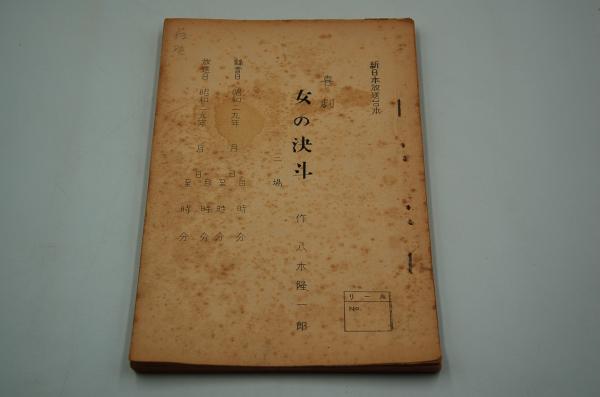 新日本放送台本
喜劇
女の決斗
二場
作 八木隆一郎
録音日 昭和二九年 月 日 自 時 分
至 時 分
放送日 昭和二九年 月 日 自 時 分
至 時 分
リール
No.